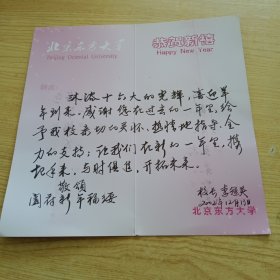 北京东方大学
Beijing Oriental University
恭贺新禧
Happy New Year
沐浴十六大的光辉，喜迎羊
年到来。感谢您在过去的一年里，给
予我校亲切的关怀、热情地指导、全
力的支持；让我们在新的一年里，携
起手来，与时俱进，开拓未来。
敬颂
阖府新年福绥
校长
北京东方大学
2002年12月19日